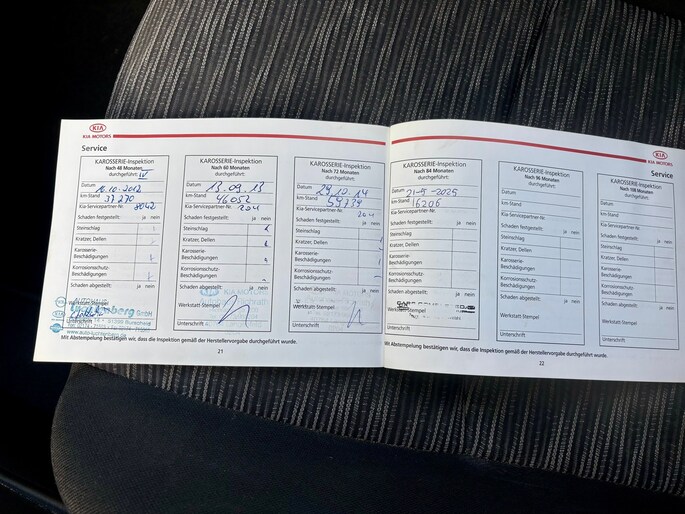 KIA
KIA MOTORS
Service
KAROSSERIE-Inspektion
Nach 48 Monaten
durchgeführt: IV
Datum
km-Stand 37270
Kia-Servicepartner-Nr. 8042
Schaden festgestellt: ja nein
Steinschlag
Kratzer, Dellen
Karosserie-
Beschädigungen
Korrosionsschutz-
Beschädigungen
Schaden abgestellt: ja nein
Werkstatt Stempel
Unterschrift
KAROSSERIE-Inspektion
Nach 60 Monaten
durchgeführt:
Datum 13.09.13
km-Stand 46052
Kia-Servicepartner-Nr. 204
Schaden festgestellt: ja nein
Steinschlag
Kratzer, Dellen
Karosserie-
Beschädigungen
Korrosionsschutz-
Beschädigungen
Schaden abgestellt: ja nein
Werkstatt Stempel
Unterschrift
KAROSSERIE-Inspektion
Nach 72 Monaten
durchgeführt:
Datum 29.10.14
km-Stand
Kia-Servicepartner-Nr. 204
Schaden festgestellt: ja nein
Steinschlag
Kratzer, Dellen
Karosserie-
Beschädigungen
Korrosionsschutz-
Beschädigungen
Schaden abgestellt: ja nein
Werkstatt Stempel
Unterschrift
Mit Abstempelung bestätigen wir, dass die Inspektion gemäß der Herstellervorgabe durchgeführt wurde.
21
KIA
KIA MOTORS
Service
KAROSSERIE-Inspektion
Nach 84 Monaten
durchgeführt:
Datum
km-Stand 16206
Kia-Servicepartner-Nr.
Schaden festgestellt: ja nein
Steinschlag
Kratzer, Dellen
Karosserie-
Beschädigungen
Korrosionsschutz-
Beschädigungen
Schaden abgestellt: ja nein
Werkstatt Stempel
Unterschrift
KAROSSERIE-Inspektion
Nach 96 Monaten
durchgeführt:
Datum
km-Stand
Kia-Servicepartner-Nr.
Schaden festgestellt: ja nein
Steinschlag
Kratzer, Dellen
Karosserie-
Beschädigungen
Korrosionsschutz-
Beschädigungen
Schaden abgestellt: ja nein
Werkstatt Stempel
Unterschrift
KAROSSERIE-Inspektion
Nach 108 Monaten
durchgeführt:
Datum
km-Stand
Kia-Servicepartner-Nr.
Schaden festgestellt: ja nein
Steinschlag
Kratzer, Dellen
Karosserie-
Beschädigungen
Korrosionsschutz-
Beschädigungen
Schaden abgestellt: ja nein
Werkstatt Stempel
Unterschrift
Mit Abstempelung bestätigen wir, dass die Inspektion gemäß der Herstellervorgabe durchgeführt wurde.
22